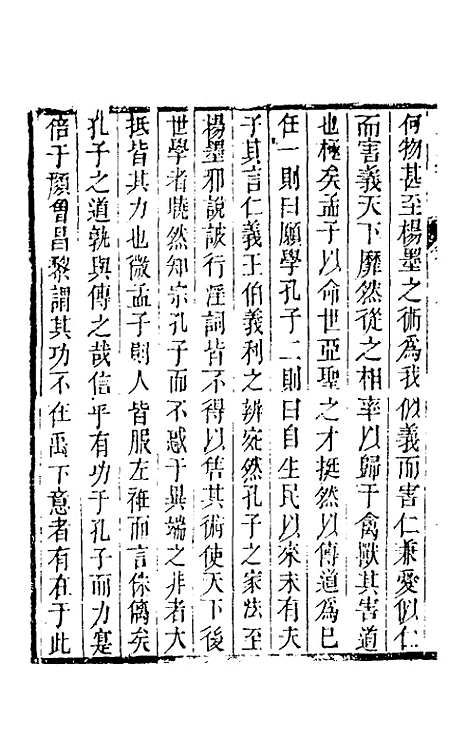 何物甚至楊墨之術爲我似義而害仁兼愛似仁
而害義天下靡然從之相率以歸于禽獸其害道
也極矣孟子以命世亞聖之才挺然以傳道爲已
任一則曰願學孔子二則曰自生民以來未有夫
子其言仁義王伯義利之辨宛然孔子之家法至
楊墨邪說詖行淫詞皆不得以售其術使天下後
世學者曉然知宗孔子而不惑于異端之非者大
抵皆其力也微孟子則人皆服左袵而言侏㒧矣
孔子之道孰與傳之哉信乎有功于孔子而力寔
倍于顏曾昌黎謂其功不在禹下意者有在于此